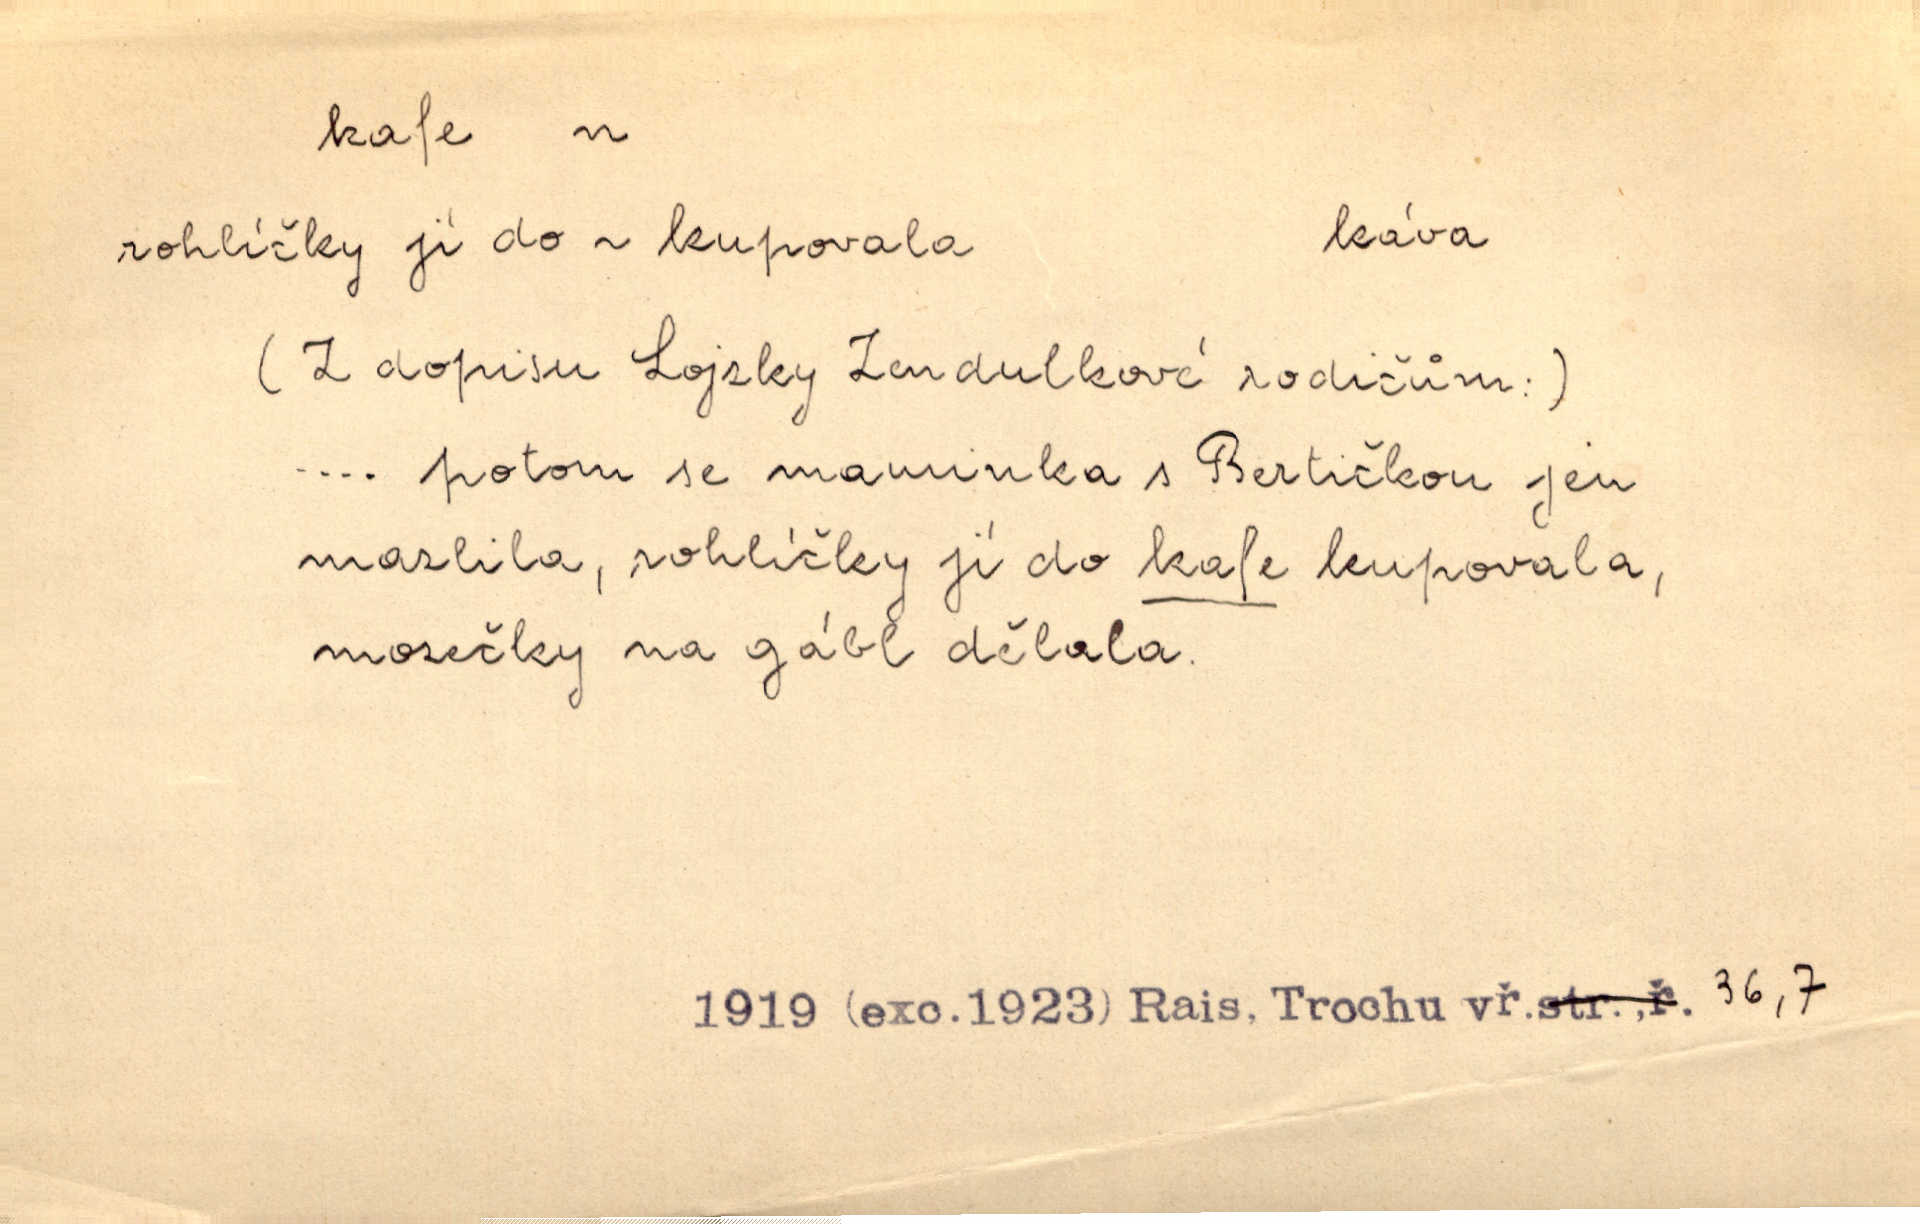 kafe n
rohlíčky jí do ~ kupovala káva
(Z dopisu Lojzky Zendulkové rodičům:)
.... potom se maminka s Bertičkou jen
mazlila, rohlíčky jí do kafe kupovala,
mozečky na gábl dělala.
1919 (exc.1923) Rais, Trochu vř.str.,ř. 36,7